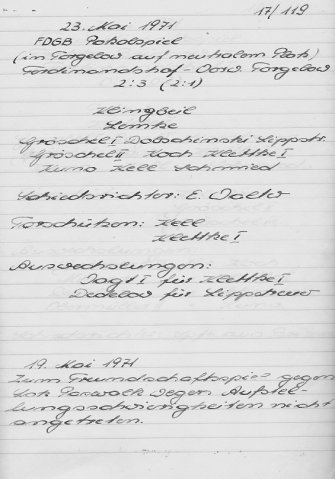 17/119
23. Mai 1971
FDGB Pokalspiel
(in Torgelow auf neutralem Platz)
Ferdinandshof - Vorw. Torgelow
2:3 (2:1)
Klingbeil
Lemke
Gröschel I Dobschinski Lippstr.
Gröschel II Koch Klettke I
Kuno Kell Schmied
Schiedsrichter: E.
Torschützen: Kell
Klettke I
Auswechslungen:
Jagt I für Klettke I
Dedelow für
19. Mai 1971
Zum Freundschaftsspiel gegen
Lok Pasewalk wegen Aufstel-
lungsschwierigkeiten nicht
angetreten.